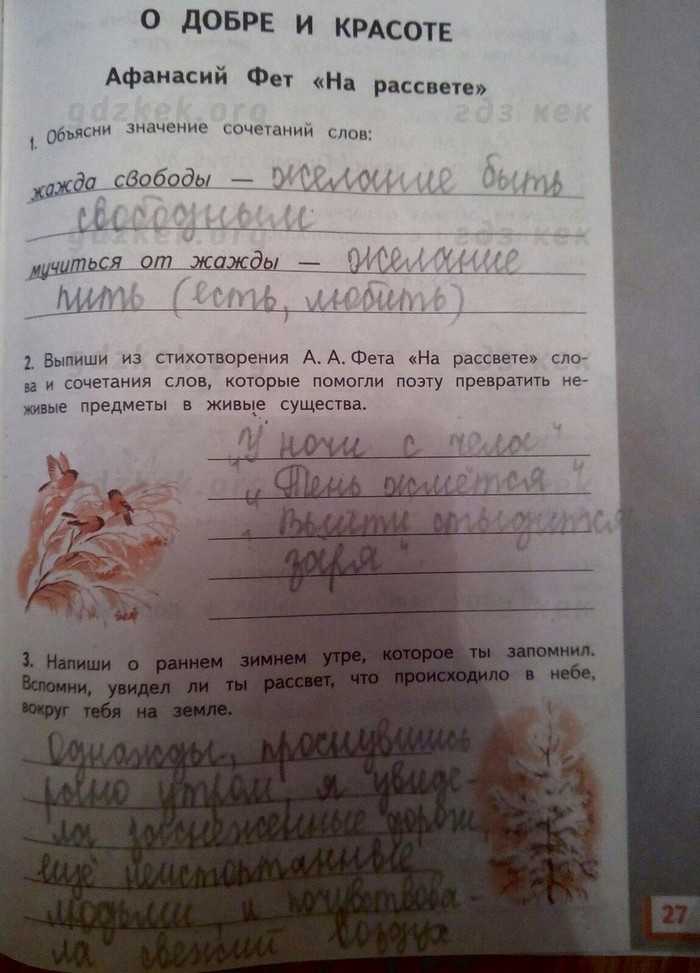 О ДОБРЕ И КРАСОТЕ
Афанасий Фет «На рассвете»
gdzkek.org гдз кек
1. Объясни значение сочетаний слов:
жажда свободы — желание быть
свободным
gdzkek.org гдз кек
мучиться от жажды — желание
пить (есть, любить)
2. Выпиши из стихотворения А. А. Фета «На рассвете» сло-
ва и сочетания слов, которые помогли поэту превратить не-
живые предметы в живые существа.
"У ночи с чела"
"Тень жмётся"
"Выйти стыдится
заря"
3. Напиши о раннем зимнем утре, которое ты запомнил.
Вспомни, увидел ли ты рассвет, что происходило в небе,
вокруг тебя на земле.
Однажды, проснувшись
рано утром, я увиде-
ла заснеженные дороги,
ещё неистоптанные
людьми, и почувствова-
ла свежий воздух
27